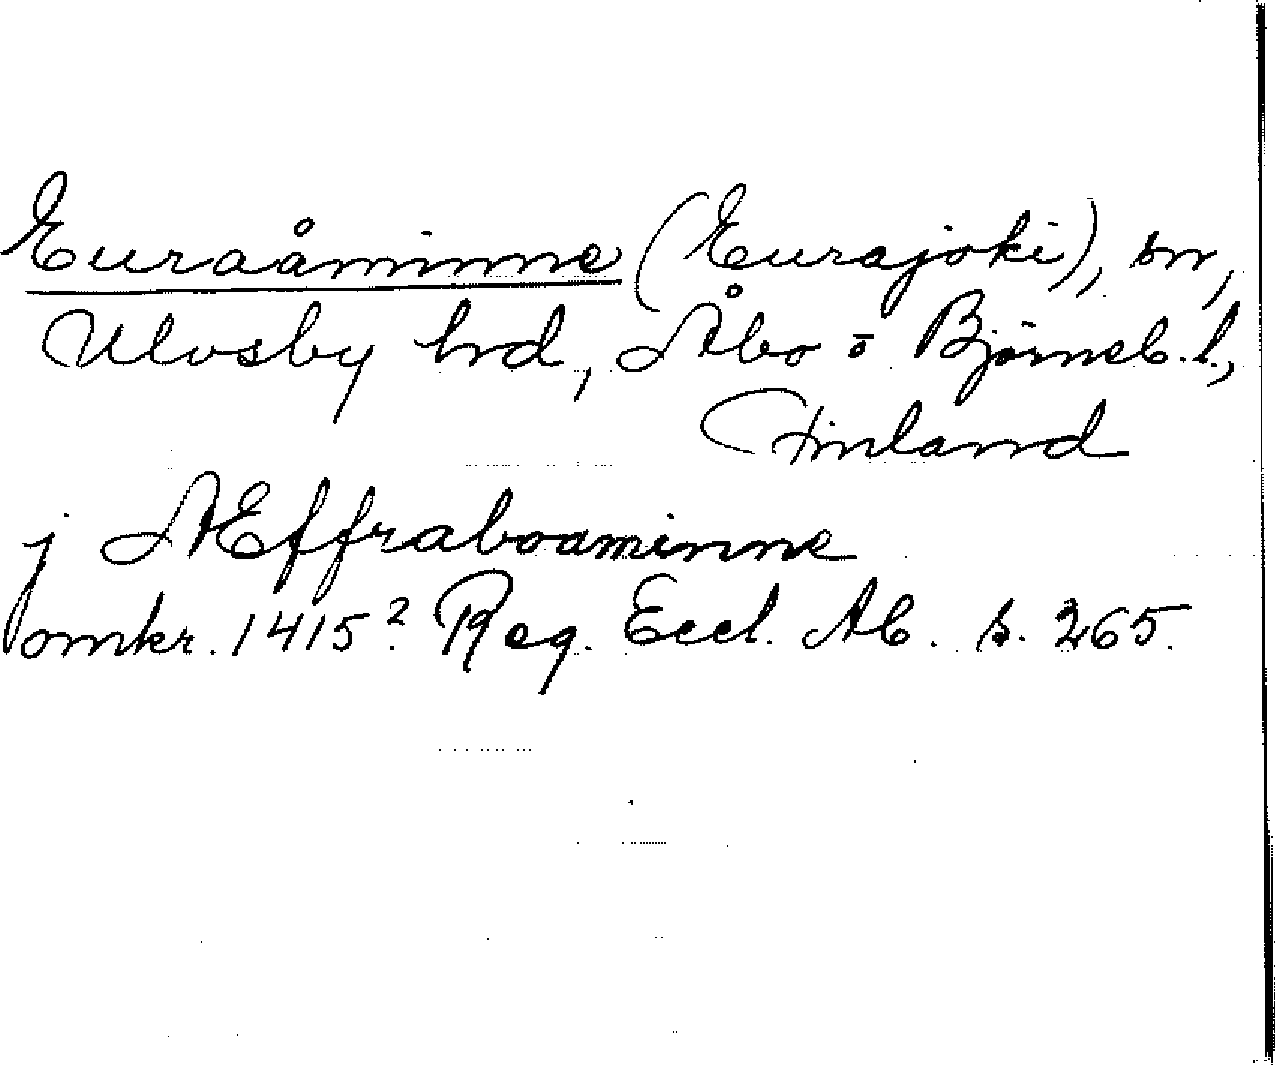 Euraåminne (Eurajoki), sn,
Ulvsby hd, Åbo o Björneb. l.,
Finland
j AEffraboaminne
omkr. 1415? Reg. Eccl. Ab. s. 265.